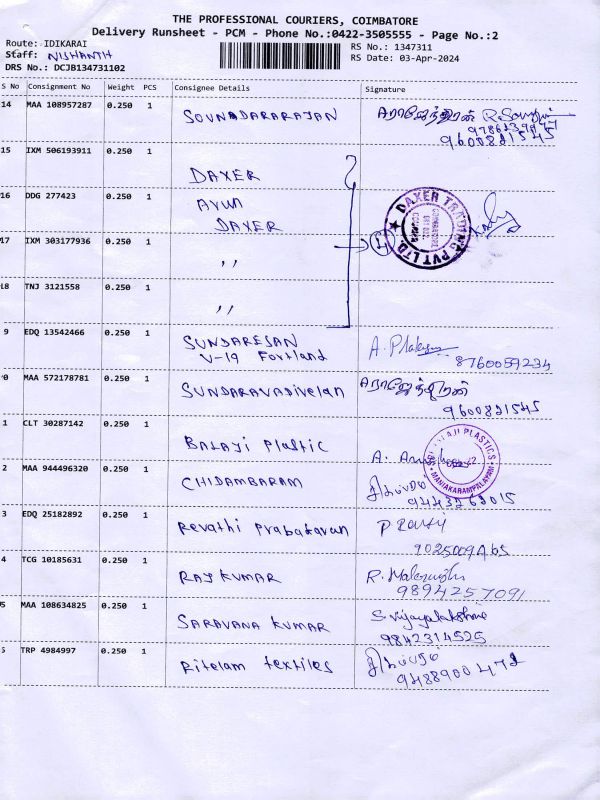 THE PROFESSIONAL COURIERS, COIMBATORE
Delivery Runsheet - PCM - Phone No.:0422-3505555 - Page No.:2
Route: IDIKARAI
RS No.: 1347311
Staff: NISHANTH
RS Date: 03-Apr-2024
DRS No.: DCJB134731102
S No Consignment No Weight PCS Consignee Details Signature
14 MAA 108957287 0.250 1 SOUNDARARAJAN
9600821545
15 IXM 506193911 0.250 1 DAXER
16 DDG 277423 0.250 1 Arun
DAXER
DAXER TRADING PVT LTD.
17 IXM 303177936 0.250 1 ,,
18 TNJ 3121558 0.250 1 ,,
9 EDQ 13542466 0.250 1 SUNDARESAN
V-19 Fortland
8760059234
0 MAA 572178781 0.250 1 SUNDARAVADIVELAN
9600821545
1 CLT 30287142 0.250 1 BALAJI Plastic
BALAJI PLASTICS
MANIAKARAMPALAYAM
2 MAA 944496320 0.250 1 CHIDAMBARAM
9443262015
3 EDQ 25182892 0.250 1 Revathi Prabakaran
4 TCG 10185631 0.250 1 RAJ KUMAR
9894257091
5 MAA 108634825 0.250 1 SARAVANA KUMAR S. Vijayalakshmi
9842314525
6 TRP 4984997 0.250 1 Ritelam textiles